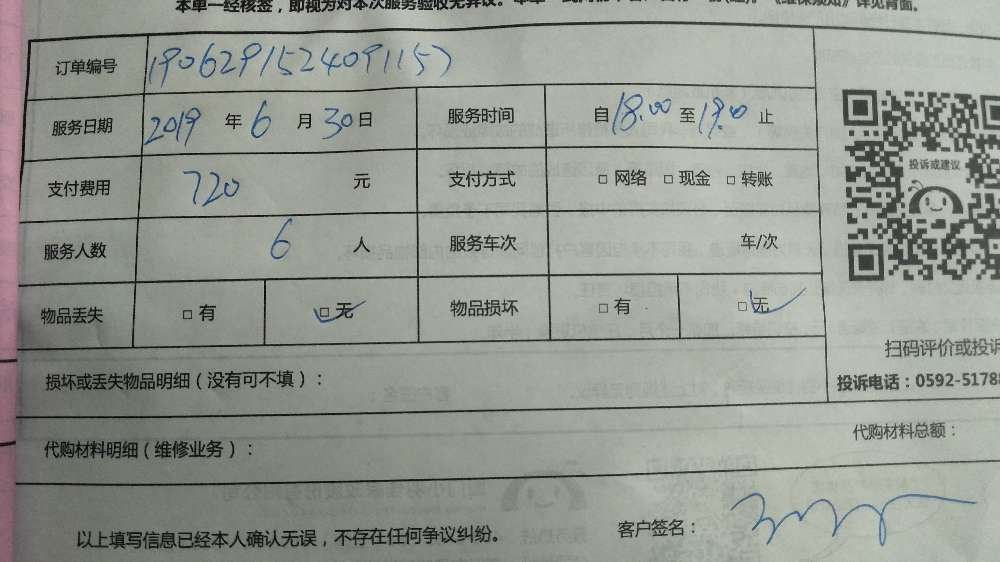 本单一经核签，即视为对本次服务验收无异议。
《维保须知》详见背面。
订单编号 1906291524091157
服务日期 2019 年 6 月 30 日 服务时间 自 18.00 至 19.00 止
支付费用 720 元 支付方式 □ 网络 □ 现金 □ 转账
服务人数 6 人 服务车次 车/次
物品丢失 □ 有 □ 无 物品损坏 □ 有 □ 无
投诉或建议
扫码评价或投诉
损坏或丢失物品明细（没有可不填）：
投诉电话：0592-5178
代购材料明细（维修业务）：
代购材料总额：
以上填写信息已经本人确认无误，不存在任何争议纠纷。
客户签名：